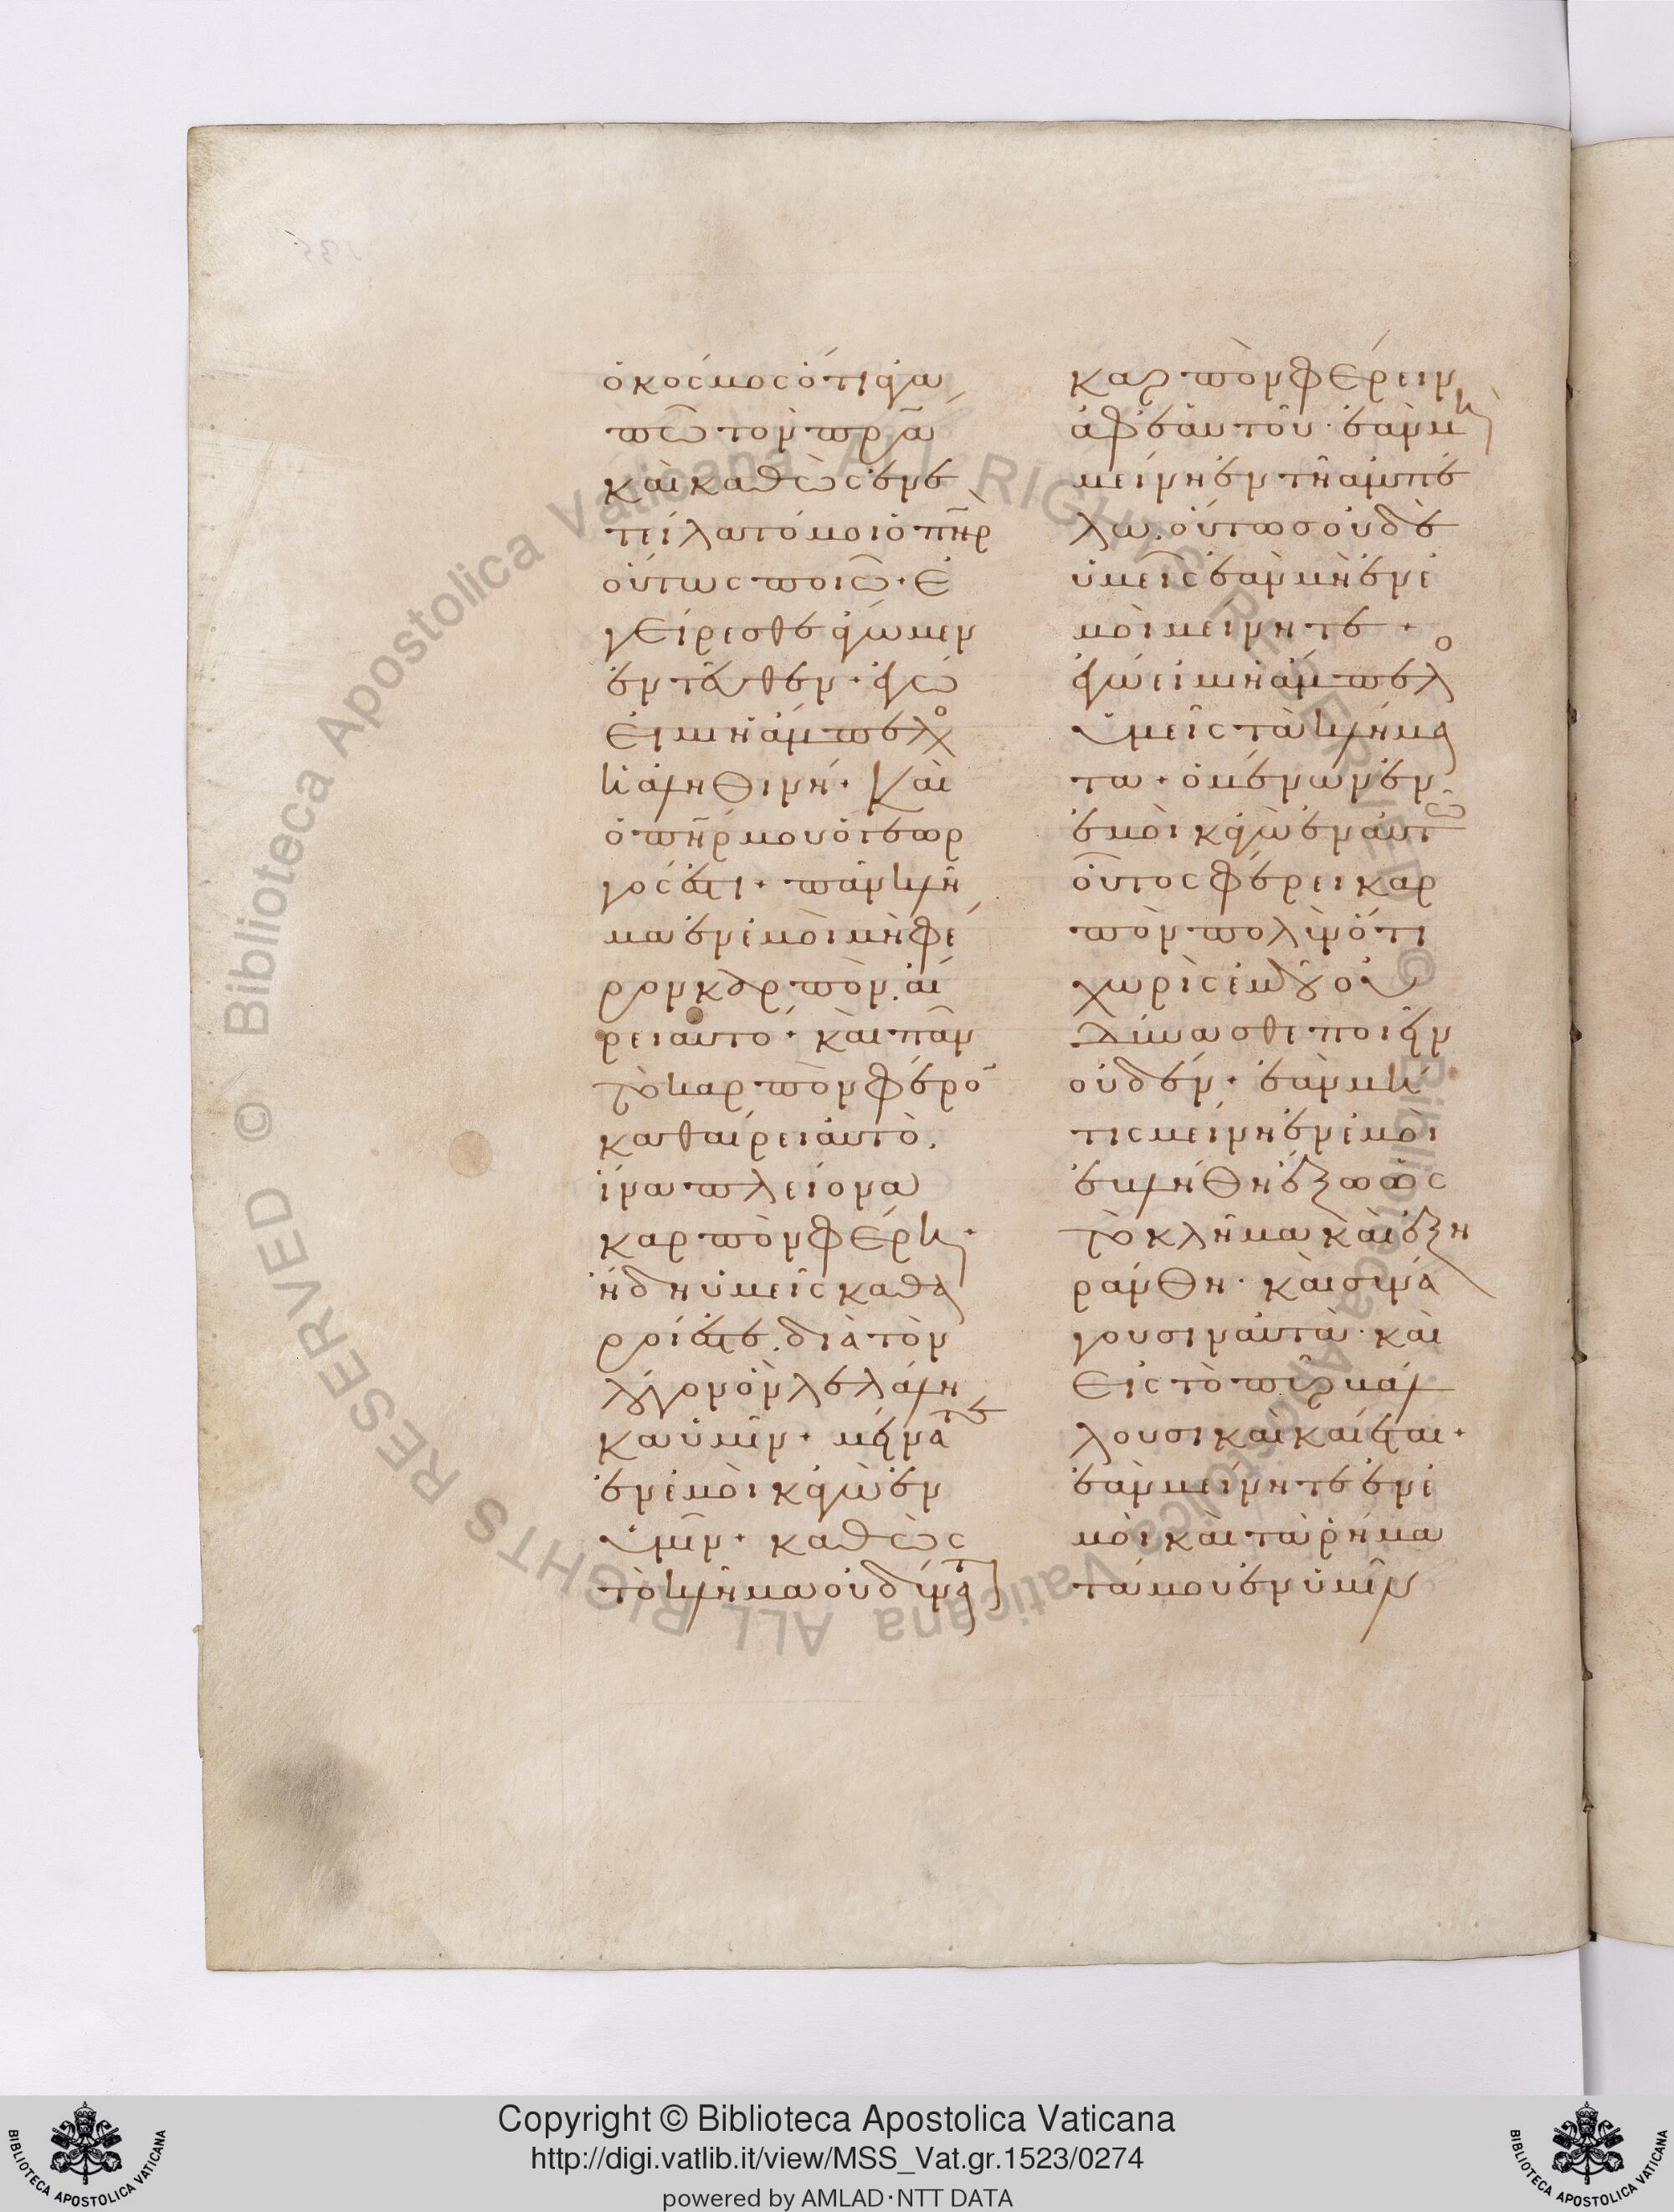 ὁ κόσμος ὅτι ἀγα
πῶ τὸν πρ̅α
καὶ καθὼς ἐνε
τείλατό μοι ὁ πη̅ρ
οὕτως ποιῶ· Ἐ
γείρεσθε ἄγωμεν
ἐντεῦθεν· ἐγώ
εἰμι ἡ ἄμπελος
ἡ ἀληθινή· Καὶ
ὁ πη̅ρ μου ὁ γεωρ
γός ἐστι· πᾶν κλῆ
μα ἐν ἐμοὶ μὴ φέ
ρον καρπὸν. αἴ
ρει αυτό· καὶ πᾶν
τὸ καρπὸν φέρο̅
καθαίρει αὐτὸ,
ἵνα πλείονα
καρπὸν φέρη·
ἤδη ὑμεῖς καθα
ροί ἐστε. διὰ τὸν
λόγον ὃν λελάλη
κα ὑμῖν· μείνατε
ἐν ἐμοὶ κἀγὼ ἐν
ὑμῖν· καθὼς
τὸ κλῆμα οὐ δύναται
καρπὸν φέρειν
ἀφ' ἑαυτοῦ· ἐὰν μὴ
μείνη ἐν τῆ ἀμπέ
λω. οὕτως οὐδὲ
ὑμεῖς ἐὰν μὴ ἐν ἐ
μοὶ μείνητε·
ἐγώ εἰμι ἡ ἄμπελος
ὑμεῖς τὰ κλήμα
τα· ὁ μένων ἐν
ἐμοὶ κἀγὼ ἐν αὐτῶ
οὗτος φέρει καρ
πὸν πολὺν ὅτι
χωρὶς ἐμοῦ οὐ
δύνασθε ποιεῖν
οὐδέν· ἐὰν μή
τις μείνη ἐν ἐμοὶ
ἐβλήθη ἔξω ὡς
τὸ κλῆμα καὶ ἐξη
ράνθη· καὶ συνά
γουσιν αὐτὰ· καὶ
εἰς τὸ πῦρ βάλ
λουσι καὶ καίεται·
ἐὰν μείνητε ἐν ἐ
μοὶ καὶ τὰ ῥήμα
τά μου ἐν ὑμῖν
Copyright © Biblioteca Apostolica Vaticana
http://digi.vatlib.it/view/MSS_Vat.gr.1523/0274
powered by AMLAD·NTT DATA
BIBLIOTECA APOSTOLICA VATICANA
BIBLIOTECA APOSTOLICA VATICANA
© Biblioteca Apostolica Vaticana ALL RIGHTS RESERVED
© Biblioteca Apostolica Vaticana ALL RIGHTS RESERVED